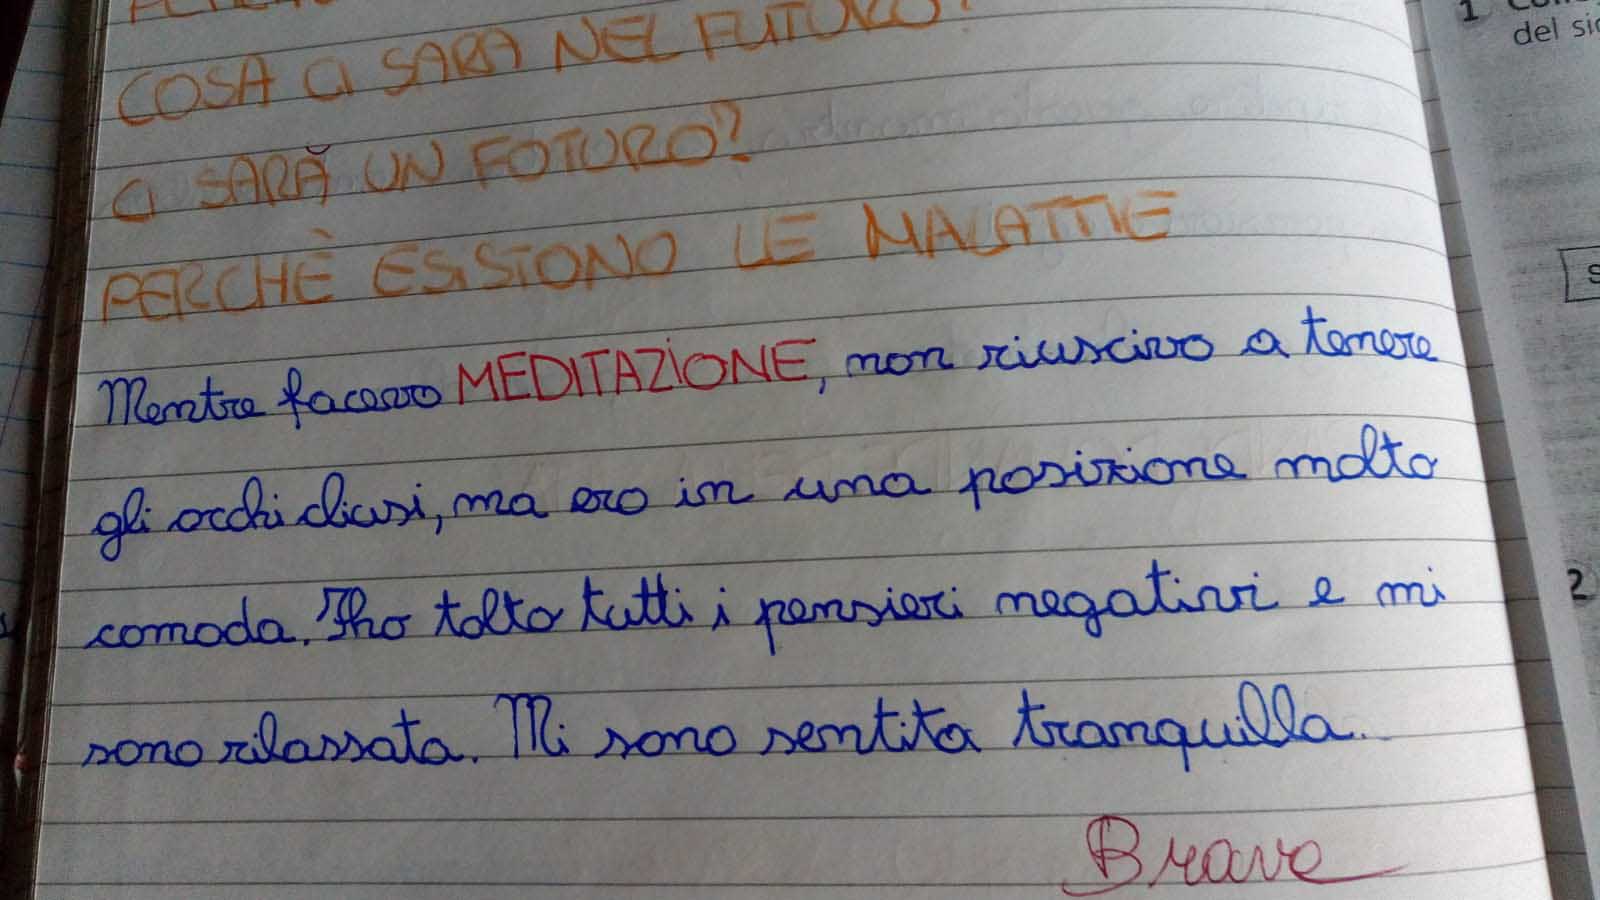 COSA CI SARÀ NEL FUTURO?
CI SARÀ UN FOTURO?
PERCHÈ ESISTONO LE MALATTIE
Mentre facevo MEDITAZIONE, non riuscivo a tenere
gli occhi chiusi, ma ero in una posizione molto
comoda. Iho tolto tutti i pensieri negativi e mi
sono rilassata. Mi sono sentita tranquilla.
Brava
1
del
2